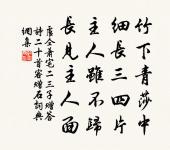 竹下青莎中
細長三四片
主人雖不歸
長見主人面
盧仝蕭宅二三子贈答
詩二十首客贈石詞典
網集